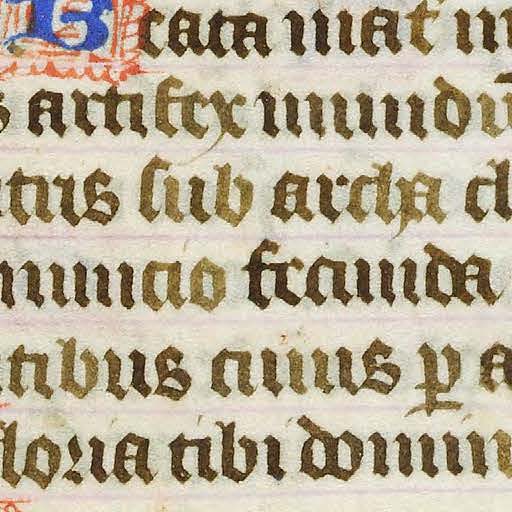 Beata mat̄ m
s artifex mundū
tius sub archa cl
nuncio fecunda
tibus cuius ꝑ a
loria tibi domin